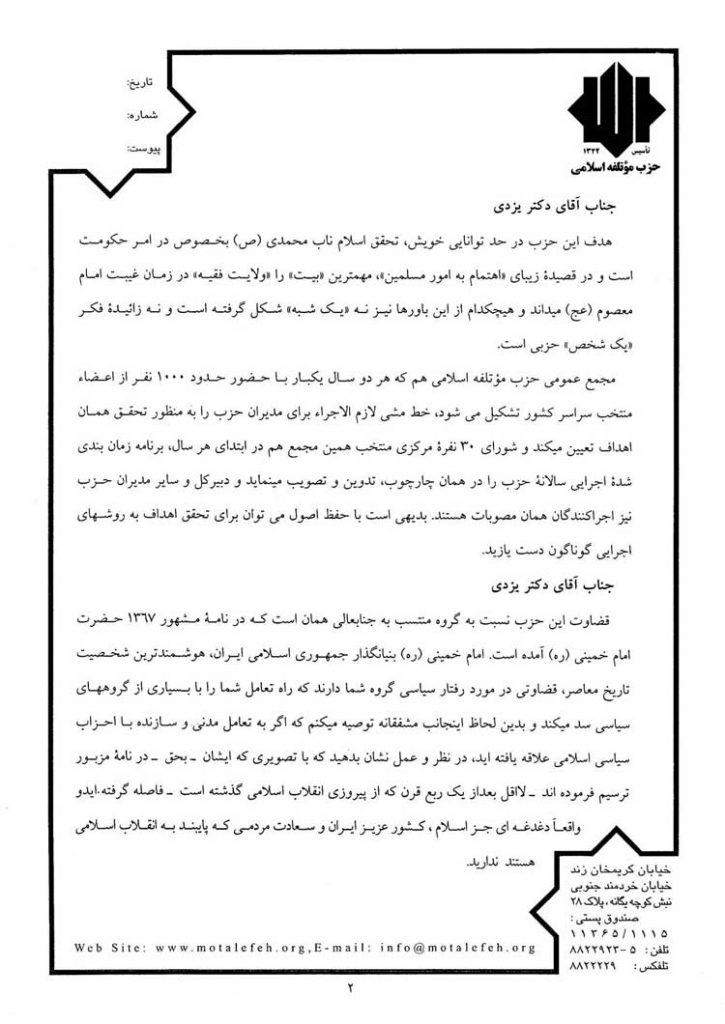 تاریخ:
شماره:
پیوست:
تأسیس ۱۳۴۲
حزب مؤتلفه اسلامی
جناب آقای دکتر یزدی
هدف این حزب در حد توانایی خویش، تحقق اسلام ناب محمدی (ص) بخصوص در امر حکومت
است و در قصیدهٔ زیبای «اهتمام به امور مسلمین»، مهمترین «بیت» را «ولایت فقیه» در زمان غیبت امام
معصوم (عج) میداند و هیچکدام از این باورها نیز نه «یک شبه» شکل گرفته است و نه زائیدهٔ فکر
«یک شخص» حزبی است.
مجمع عمومی حزب مؤتلفه اسلامی هم که هر دو سال یکبار با حضور حدود ۱۰۰۰ نفر از اعضاء
منتخب سراسر کشور تشکیل می شود، خط مشی لازم الاجراء برای مدیران حزب را به منظور تحقق همان
اهداف تعیین میکند و شورای ۳۰ نفرهٔ مرکزی منتخب همین مجمع هم در ابتدای هر سال، برنامه زمان بندی
شدهٔ اجرایی سالانهٔ حزب را در همان چارچوب، تدوین و تصویب مینماید و دبیرکل و سایر مدیران حزب
نیز اجراکنندگان همان مصوبات هستند. بدیهی است با حفظ اصول می توان برای تحقق اهداف به روشهای
اجرایی گوناگون دست یازید.
جناب آقای دکتر یزدی
قضاوت این حزب نسبت به گروه منتسب به جنابعالی همان است که در نامهٔ مشهور ۱۳۶۷ حضرت
امام خمینی (ره) آمده است. امام خمینی (ره) بنیانگذار جمهوری اسلامی ایران، هوشمندترین شخصیت
تاریخ معاصر، قضاوتی در مورد رفتار سیاسی گروه شما دارند که راه تعامل شما را با بسیاری از گروههای
سیاسی سد میکند و بدین لحاظ اینجانب مشفقانه توصیه میکنم که اگر به تعامل مدنی و سازنده با احزاب
سیاسی اسلامی علاقه یافته اید، در نظر و عمل نشان بدهید که با تصویری که ایشان ـ بحق ـ در نامهٔ مزبور
ترسیم فرموده اند ـ لااقل بعداز یک ربع قرن که از پیروزی انقلاب اسلامی گذشته است ـ فاصله گرفته.ایدو
واقعاً دغدغه ای جز اسلام ، کشور عزیز ایران و سعادت مردمی که پایبند به انقلاب اسلامی
هستند ندارید.
خیابان کریمخان زند
خیابان خردمند جنوبی
نبش کوچه یگانه، پلاک ۲۸
صندوق پستی :
۱۱۳۶۵/۱۱۱۵
تلفن: ۵-۸۸۲۲۹۲۳
تلفکس: ۸۸۲۲۲۲۹
Web Site: www.motalefeh.org,E-mail: info@motalefeh.org
۲